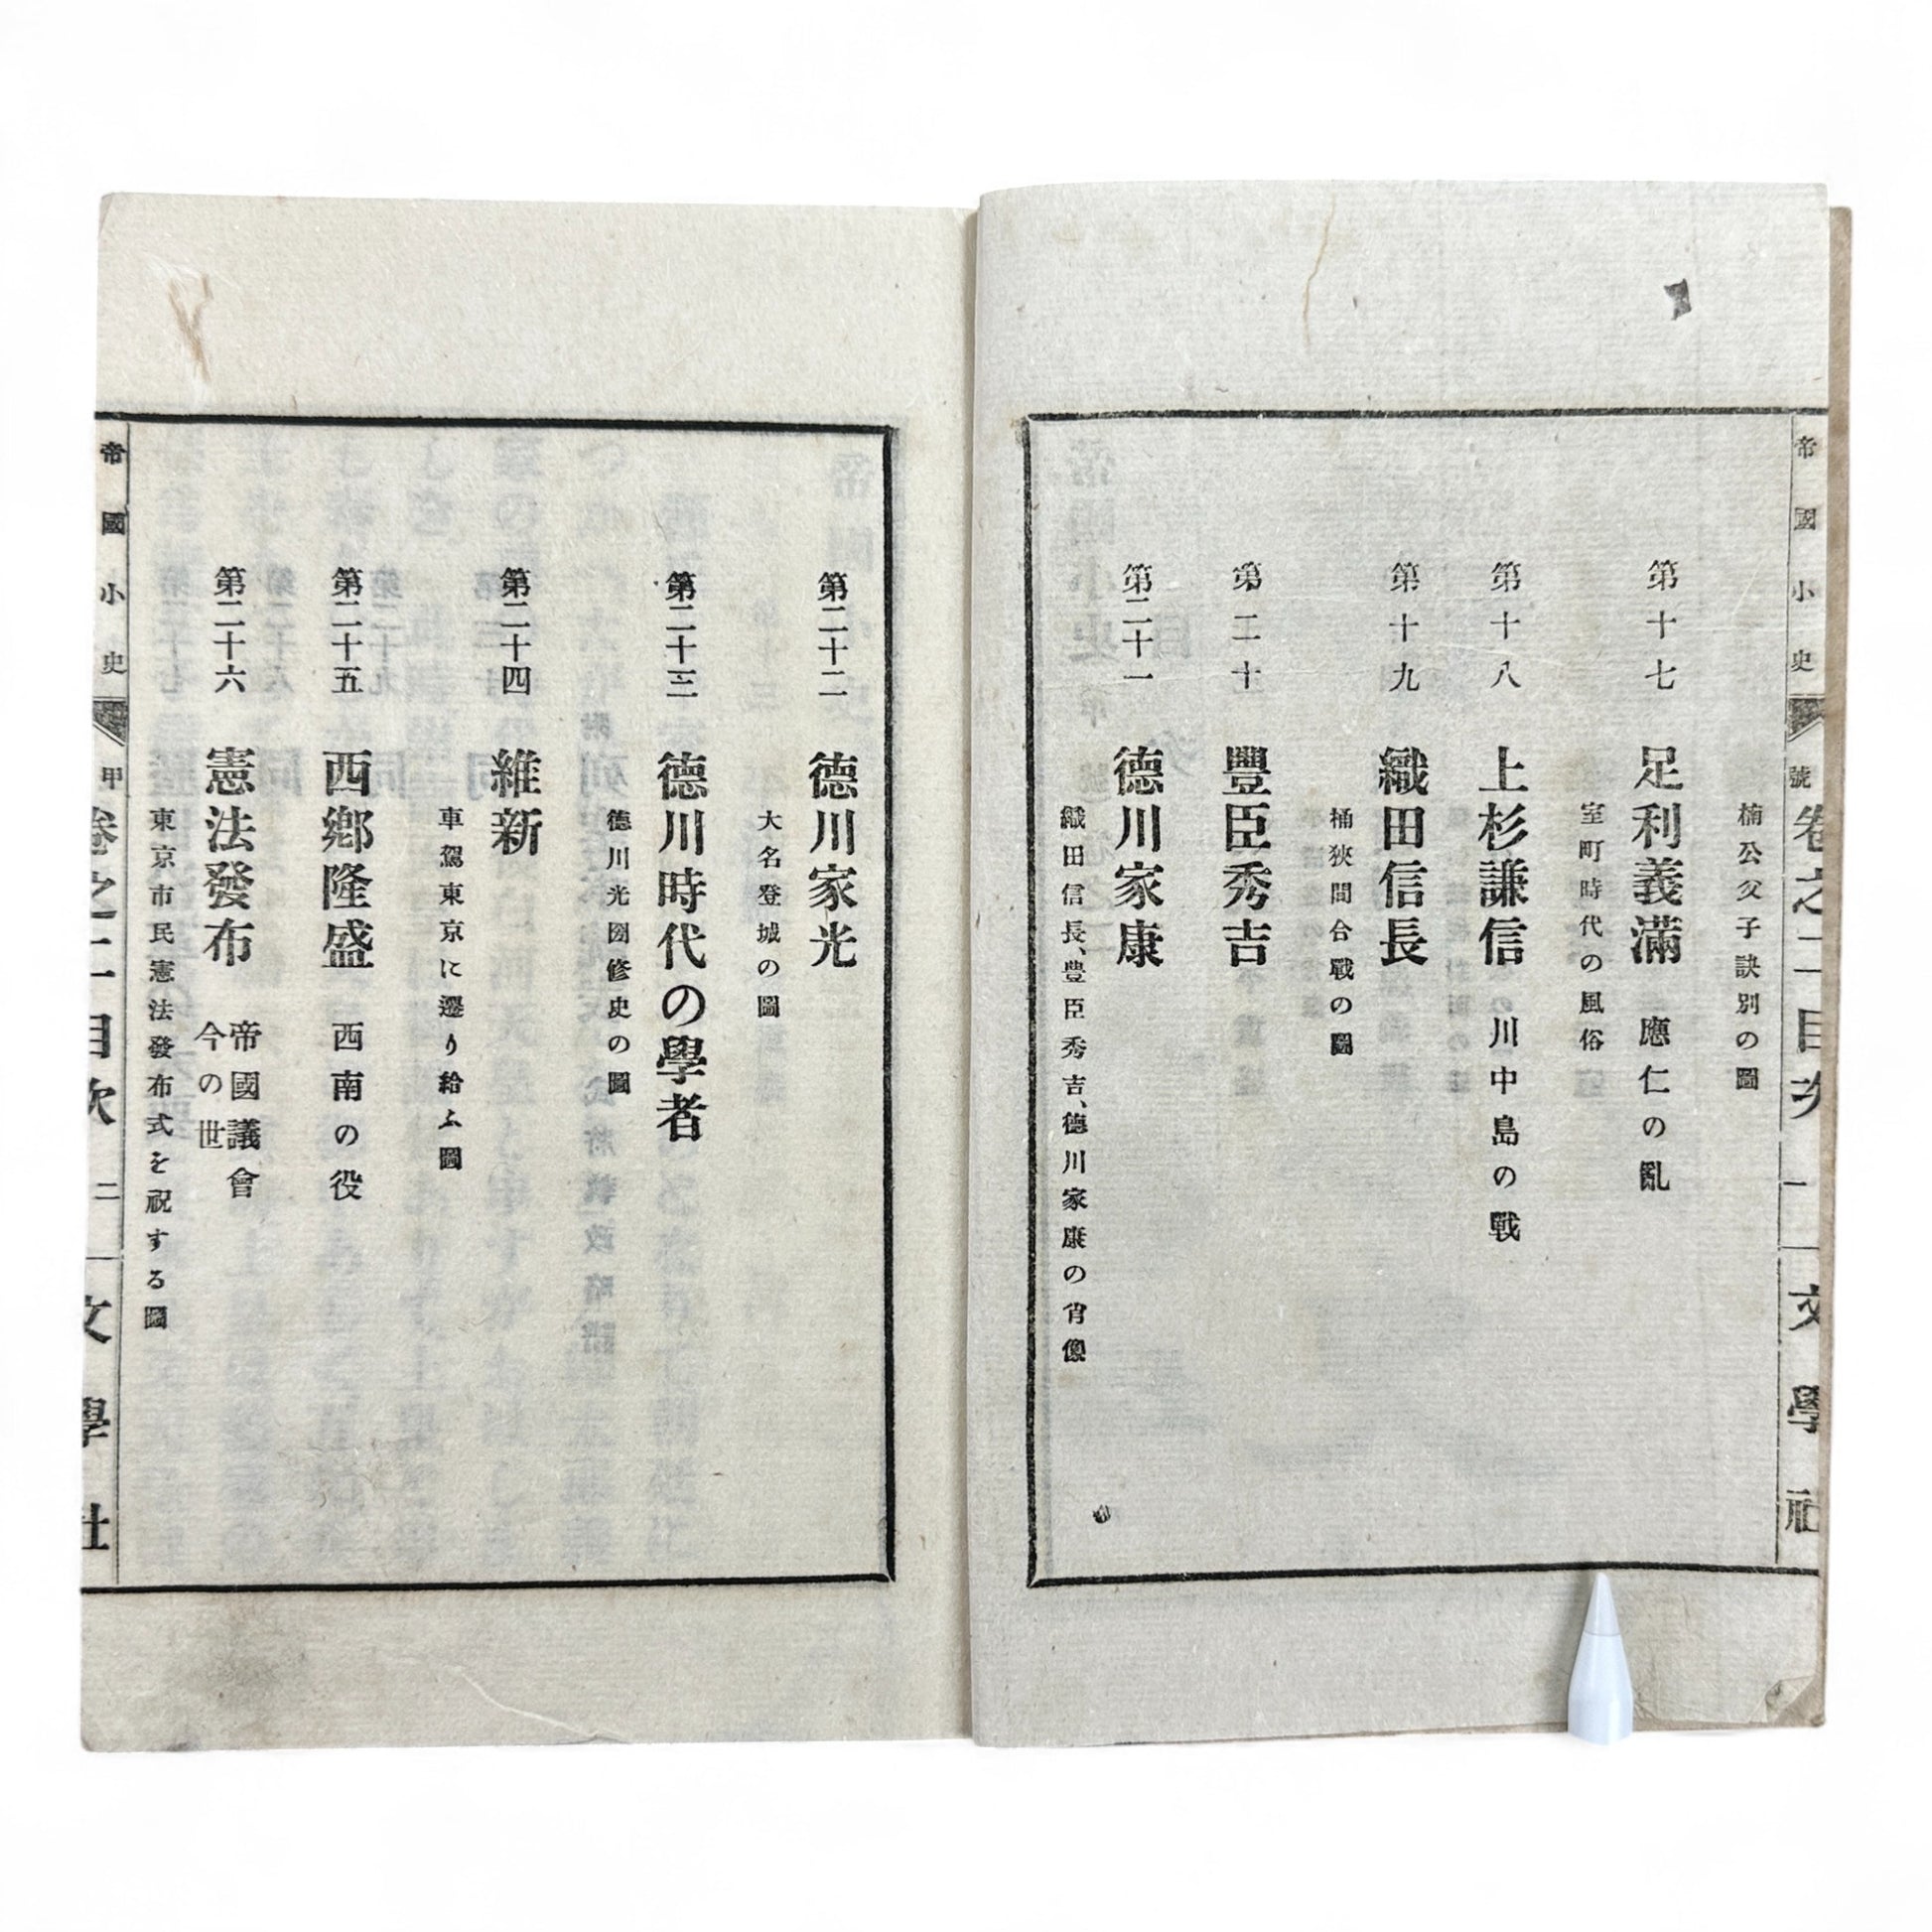 帝國小史 號卷之二目次 一 文學社
楠公父子訣別の圖
第十七 足利義滿 應仁の亂
室町時代の風俗
第十八 上杉謙信 川中島の戰
第十九 織田信長
桶狹間合戰の圖
第二十 豐臣秀吉
第二十一 德川家康
織田信長、豊臣秀吉、德川家康の肖像
第二十二 德川家光
大名登城の圖
第二十三 德川時代の學者
德川光圀修史の圖
第二十四 維新
車駕東京に遷り給ふ圖
第二十五 西鄕隆盛 西南の役
第二十六 憲法發布 帝國議會
今の世
東京市民憲法發布式を祝する圖
帝國小史 甲 卷之二目次 二 文學社